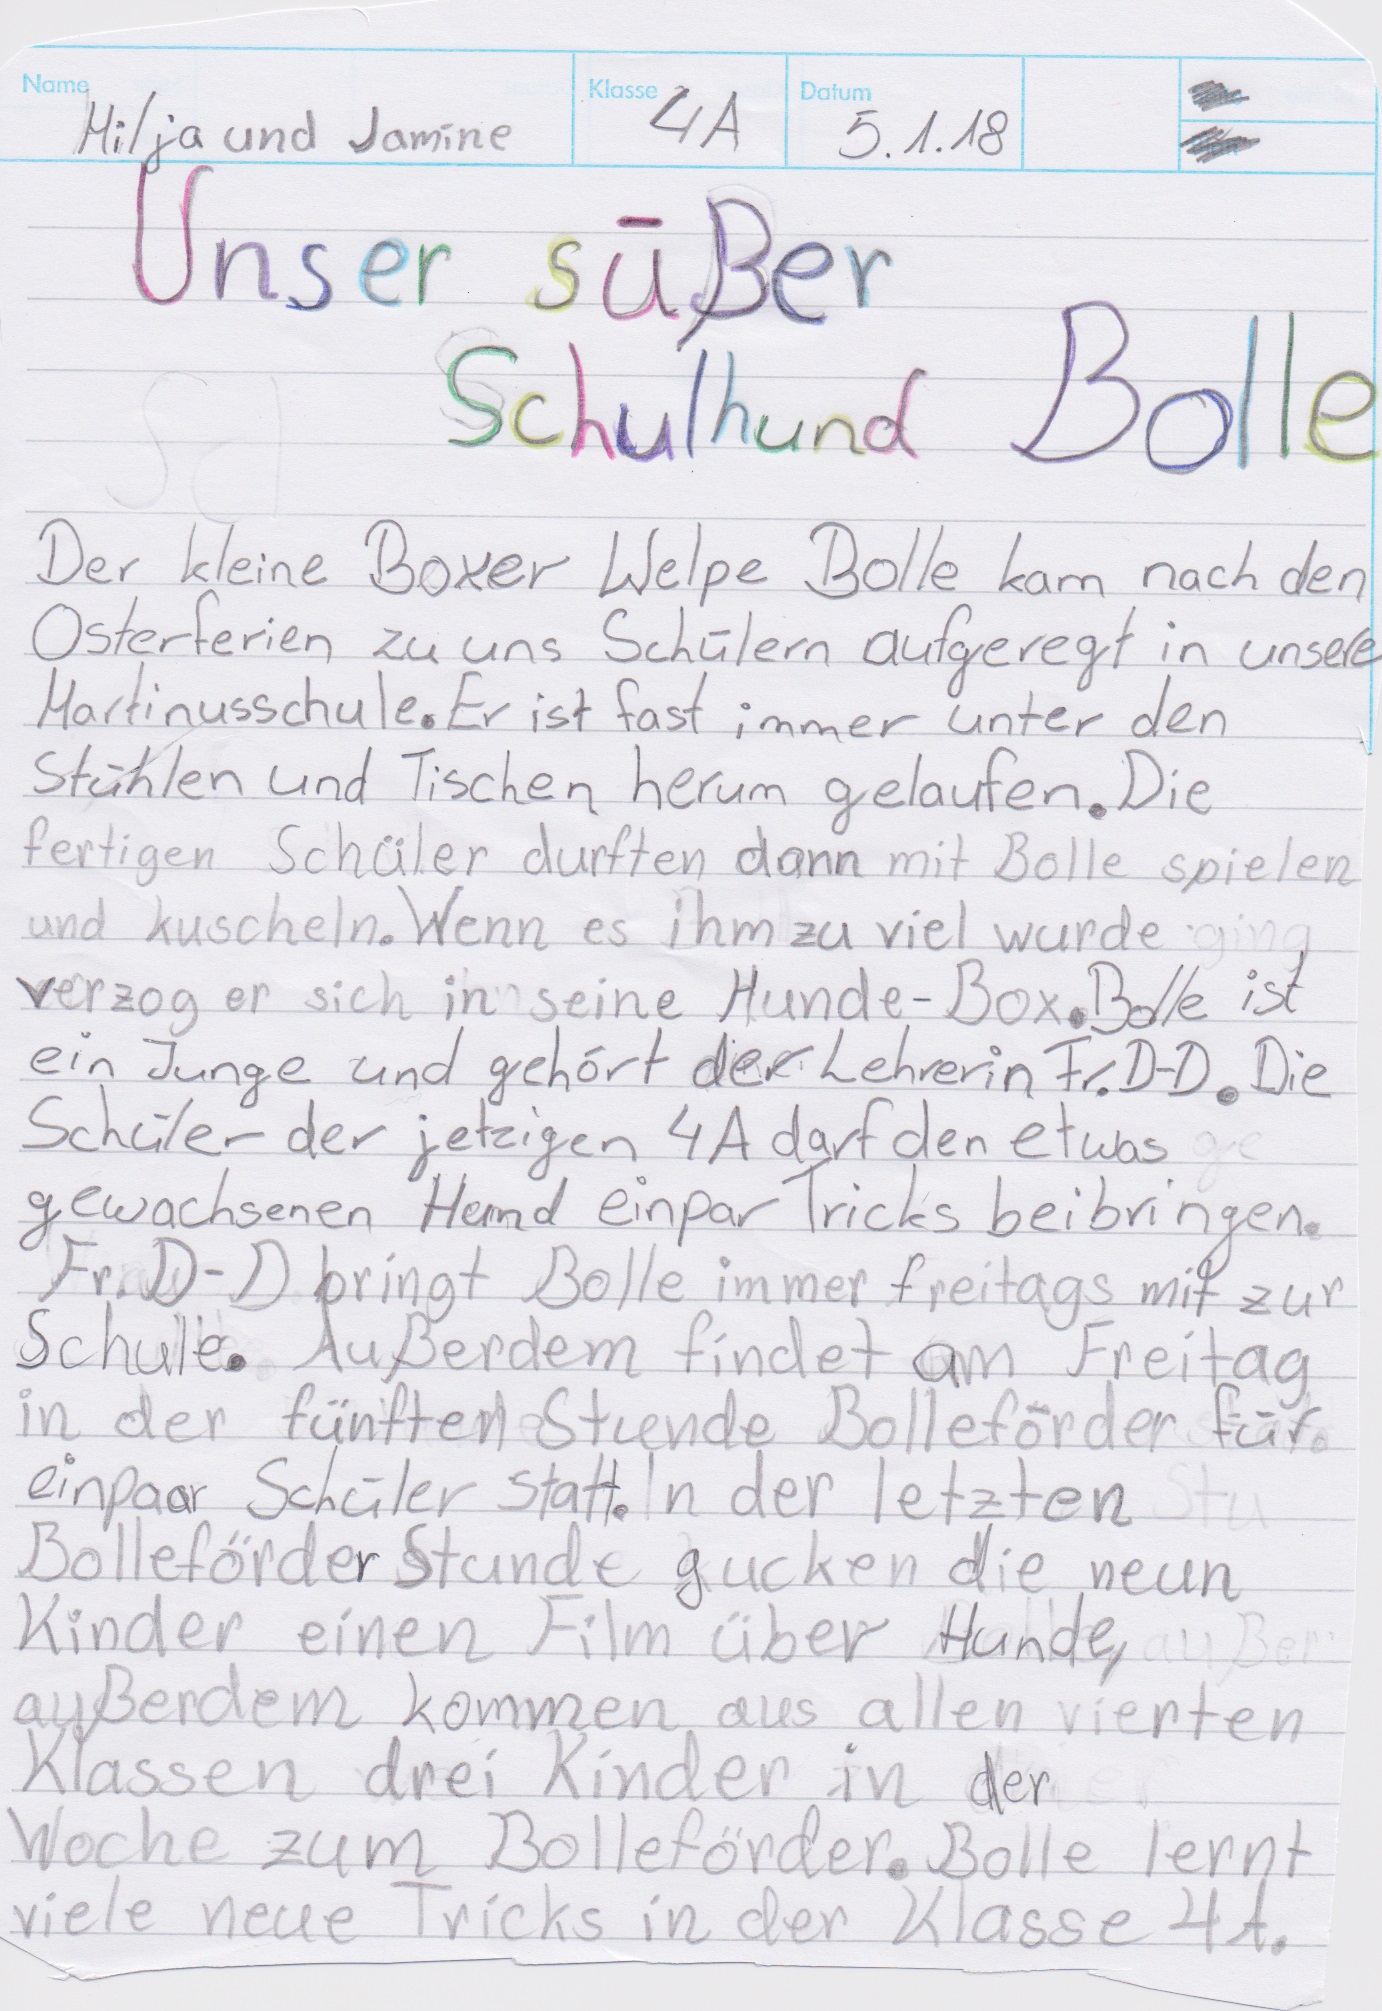 Name
Milja und Jamine
Klasse
4A
Datum
5.1.18
Unser süßer
Schulhund Bolle
Der kleine Boxer Welpe Bolle kam nach den
Osterferien zu uns Schülern aufgeregt in unsere
Martinusschule. Er ist fast immer unter den
Stühlen und Tischen herum gelaufen. Die
fertigen Schüler durften dann mit Bolle spielen
und kuscheln. Wenn es ihm zu viel wurde
verzog er sich in seine Hunde-Box. Bolle ist
ein Junge und gehört der Lehrerin Fr. D-D. Die
Schüler der jetzigen 4A darf den etwas
gewachsenen Hund einpar Tricks beibringen.
Fr. D-D bringt Bolle immer freitags mit zur
Schule. Außerdem findet am Freitag
in der fünften Stunde Bolleförder für
einpaar Schüler statt. In der letzten
Bolleförder Stunde gucken die neun
Kinder einen Film über Hunde,
außerdem kommen aus allen vierten
Klassen drei Kinder in der
Woche zum Bolleförder. Bolle lernt
viele neue Tricks in der Klasse 4A.